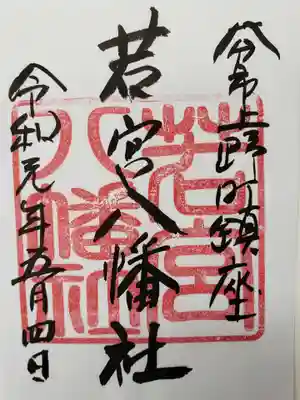 町鎮座
若宮八幡社
令和元年五月四日
若宮
八幡社